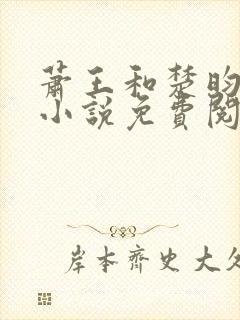 萧王和楚昀
小说免費閱
岸本齊史大久